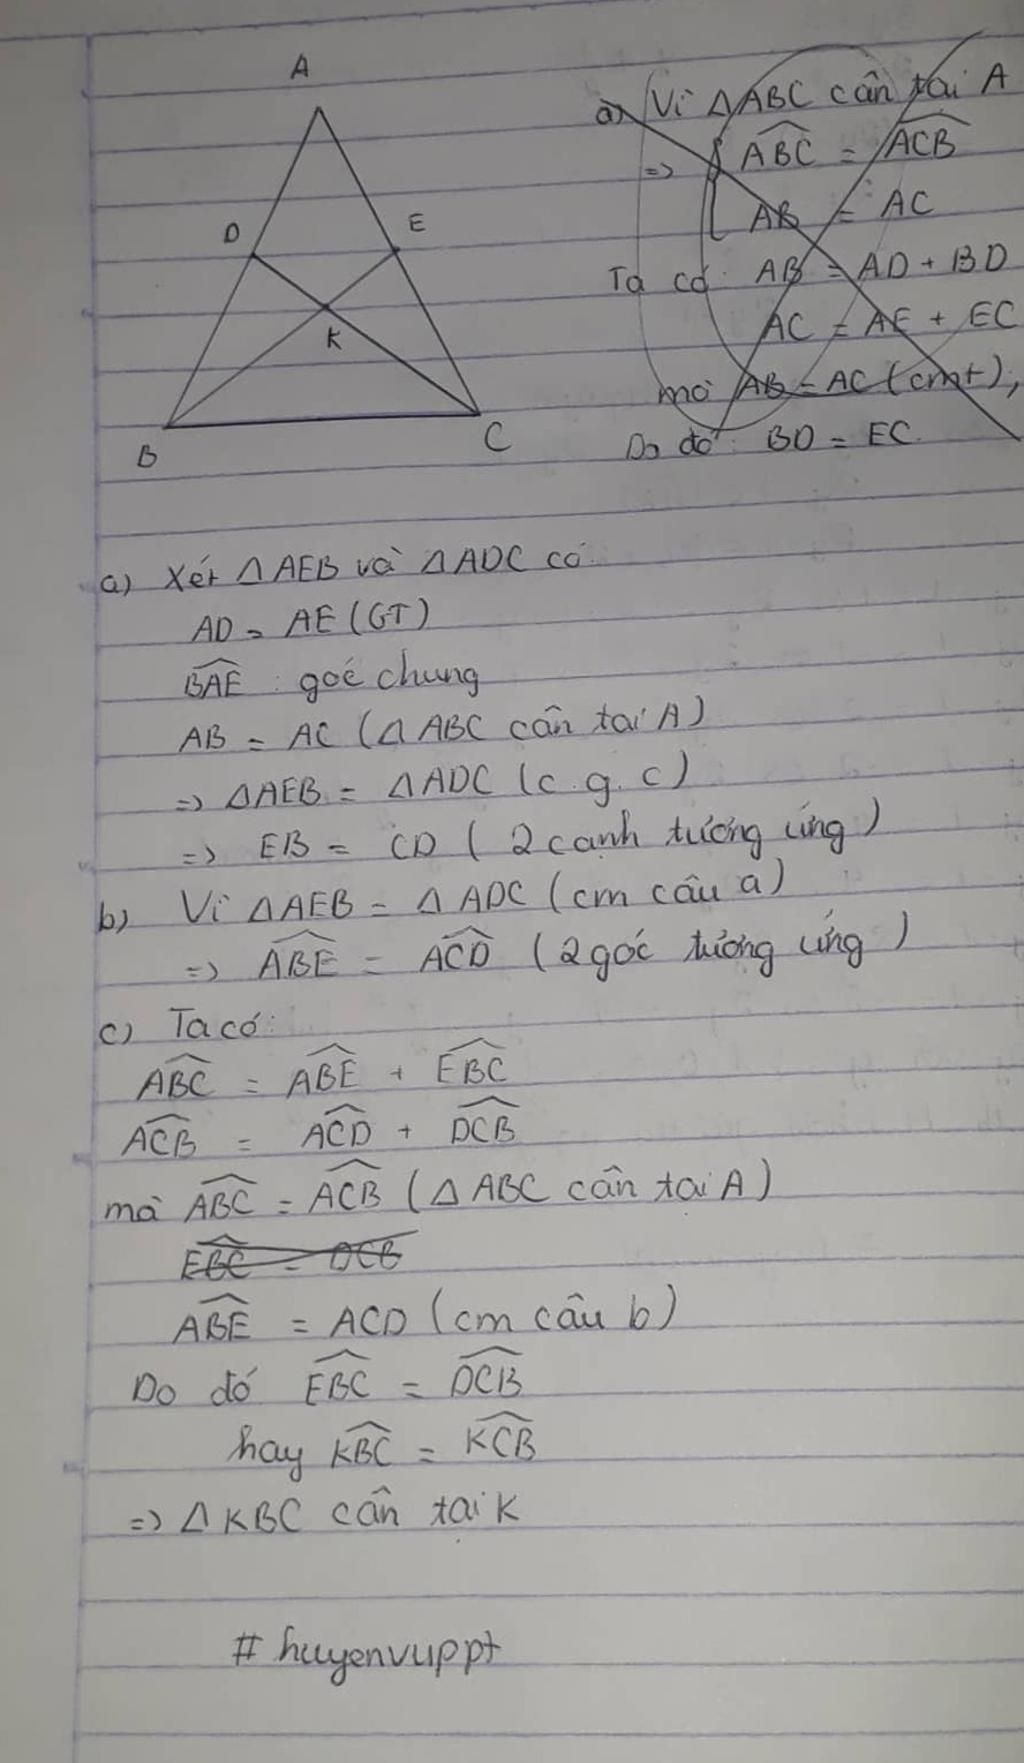 A
D
E
K
B
C
a) Vì △ABC cân tại A
=> { \widehat{ABC} = \widehat{ACB}
AB = AC
Ta có: AB = AD + BD
AC = AE + EC
mà AB = AC (cmt),
Do đó: BD = EC.
a) Xét △AEB và △ADC có:
AD = AE (GT)
\widehat{BAE} : goć chung
AB = AC (△ABC cân tại A)
=> △AEB = △ADC (c.g.c)
=> EB = CD (2 cạnh tương ứng)
b) Vì △AEB = △ADC (cm câu a)
=> \widehat{ABE} = \widehat{ACD} (2 góc tương ứng)
c) Ta có:
\widehat{ABC} = \widehat{ABE} + \widehat{EBC}
\widehat{ACB} = \widehat{ACD} + \widehat{DCB}
mà \widehat{ABC} = \widehat{ACB} (△ABC cân tại A)
\widehat{EBC} = DCB
\widehat{ABE} = ACD (cm câu b)
Do đó \widehat{EBC} = \widehat{DCB}
hay \widehat{KBC} = \widehat{KCB}
=> △KBC cân tại K
#huyenvuppt